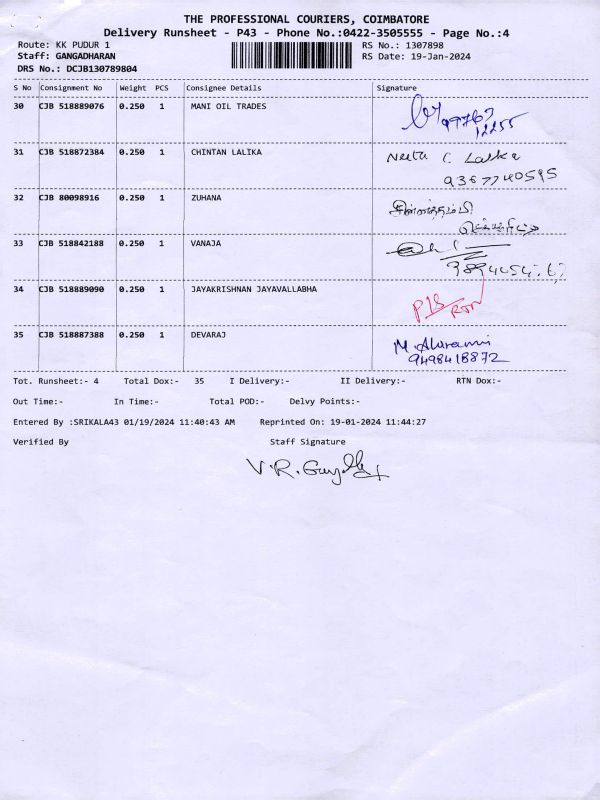 THE PROFESSIONAL COURIERS, COIMBATORE
Delivery Runsheet - P43 - Phone No.:0422-3505555 - Page No.:4
Route: KK PUDUR 1 RS No.: 1307898
Staff: GANGADHARAN RS Date: 19-Jan-2024
DRS No.: DCJB130789804
S No Consignment No Weight PCS Consignee Details Signature
30 CJB 518889076 0.250 1 MANI OIL TRADES
97767
12255
31 CJB 518872384 0.250 1 CHINTAN LALIKA Neeta C. Lalka
9367740595
32 CJB 80098916 0.250 1 ZUHANA
33 CJB 518842188 0.250 1 VANAJA
34 CJB 518889090 0.250 1 JAYAKRISHNAN JAYAVALLABHA
RTN
35 CJB 518887388 0.250 1 DEVARAJ M. Abirami
9498418872
Tot. Runsheet:- 4 Total Dox:- 35 I Delivery:- II Delivery:- RTN Dox:-
Out Time:- In Time:- Total POD:- Delvy Points:-
Entered By :SRIKALA43 01/19/2024 11:40:43 AM Reprinted On: 19-01-2024 11:44:27
Verified By Staff Signature
V.R.